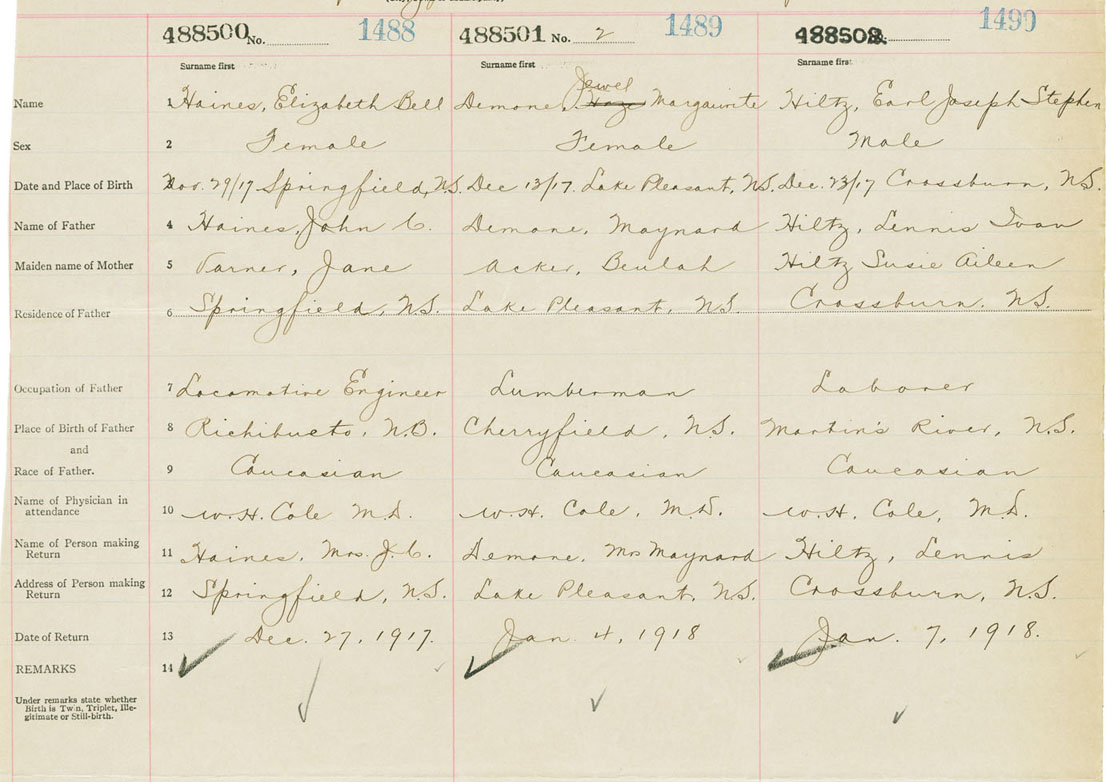 488500 No. 1488 488501 No. 2 1489 488502 1490
Surname first Surname first Surname first
Name 1 Haines, Elizabeth Bell Demone, Jewel Margaurite Hiltz, Earl Joseph Stephen
Sex 2 Female Female Male
Date and Place of Birth 3 Nov. 29/17 Springfield, N.S. Dec 13/17. Lake Pleasant, N.S. Dec. 23/17 Crossburn, N.S.
Name of Father 4 Haines, John C. Demone, Maynard Hiltz, Lennis Ivan
Maiden name of Mother 5 Varner, Jane Acker, Beulah Hiltz Susie Aileen
Residence of Father 6 Springfield, N.S. Lake Pleasant, N.S. Crossburn. N.S.
Occupation of Father 7 Locomotive Engineer Lumberman Laborer
Place of Birth of Father 8 Richibucto, N.B. Cherryfield, N.S. Martin's River, N.S.
and
Race of Father. 9 Caucasian Caucasian Caucasian
Name of Physician in
attendance 10 W.H. Cole M.D. W.H. Cole, M.D. W.H. Cole, M.D.
Name of Person making
Return 11 Haines, Mrs. J.C. Demone, Mrs Maynard Hiltz, Lennis
Address of Person making
Return 12 Springfield, N.S. Lake Pleasant, N.S. Crossburn, N.S.
Date of Return 13 Dec. 27, 1917. Jan. 4, 1918 Jan. 7, 1918.
REMARKS 14
Under remarks state whether
Birth is Twin, Triplet, Ille-
gitimate or Still-birth.